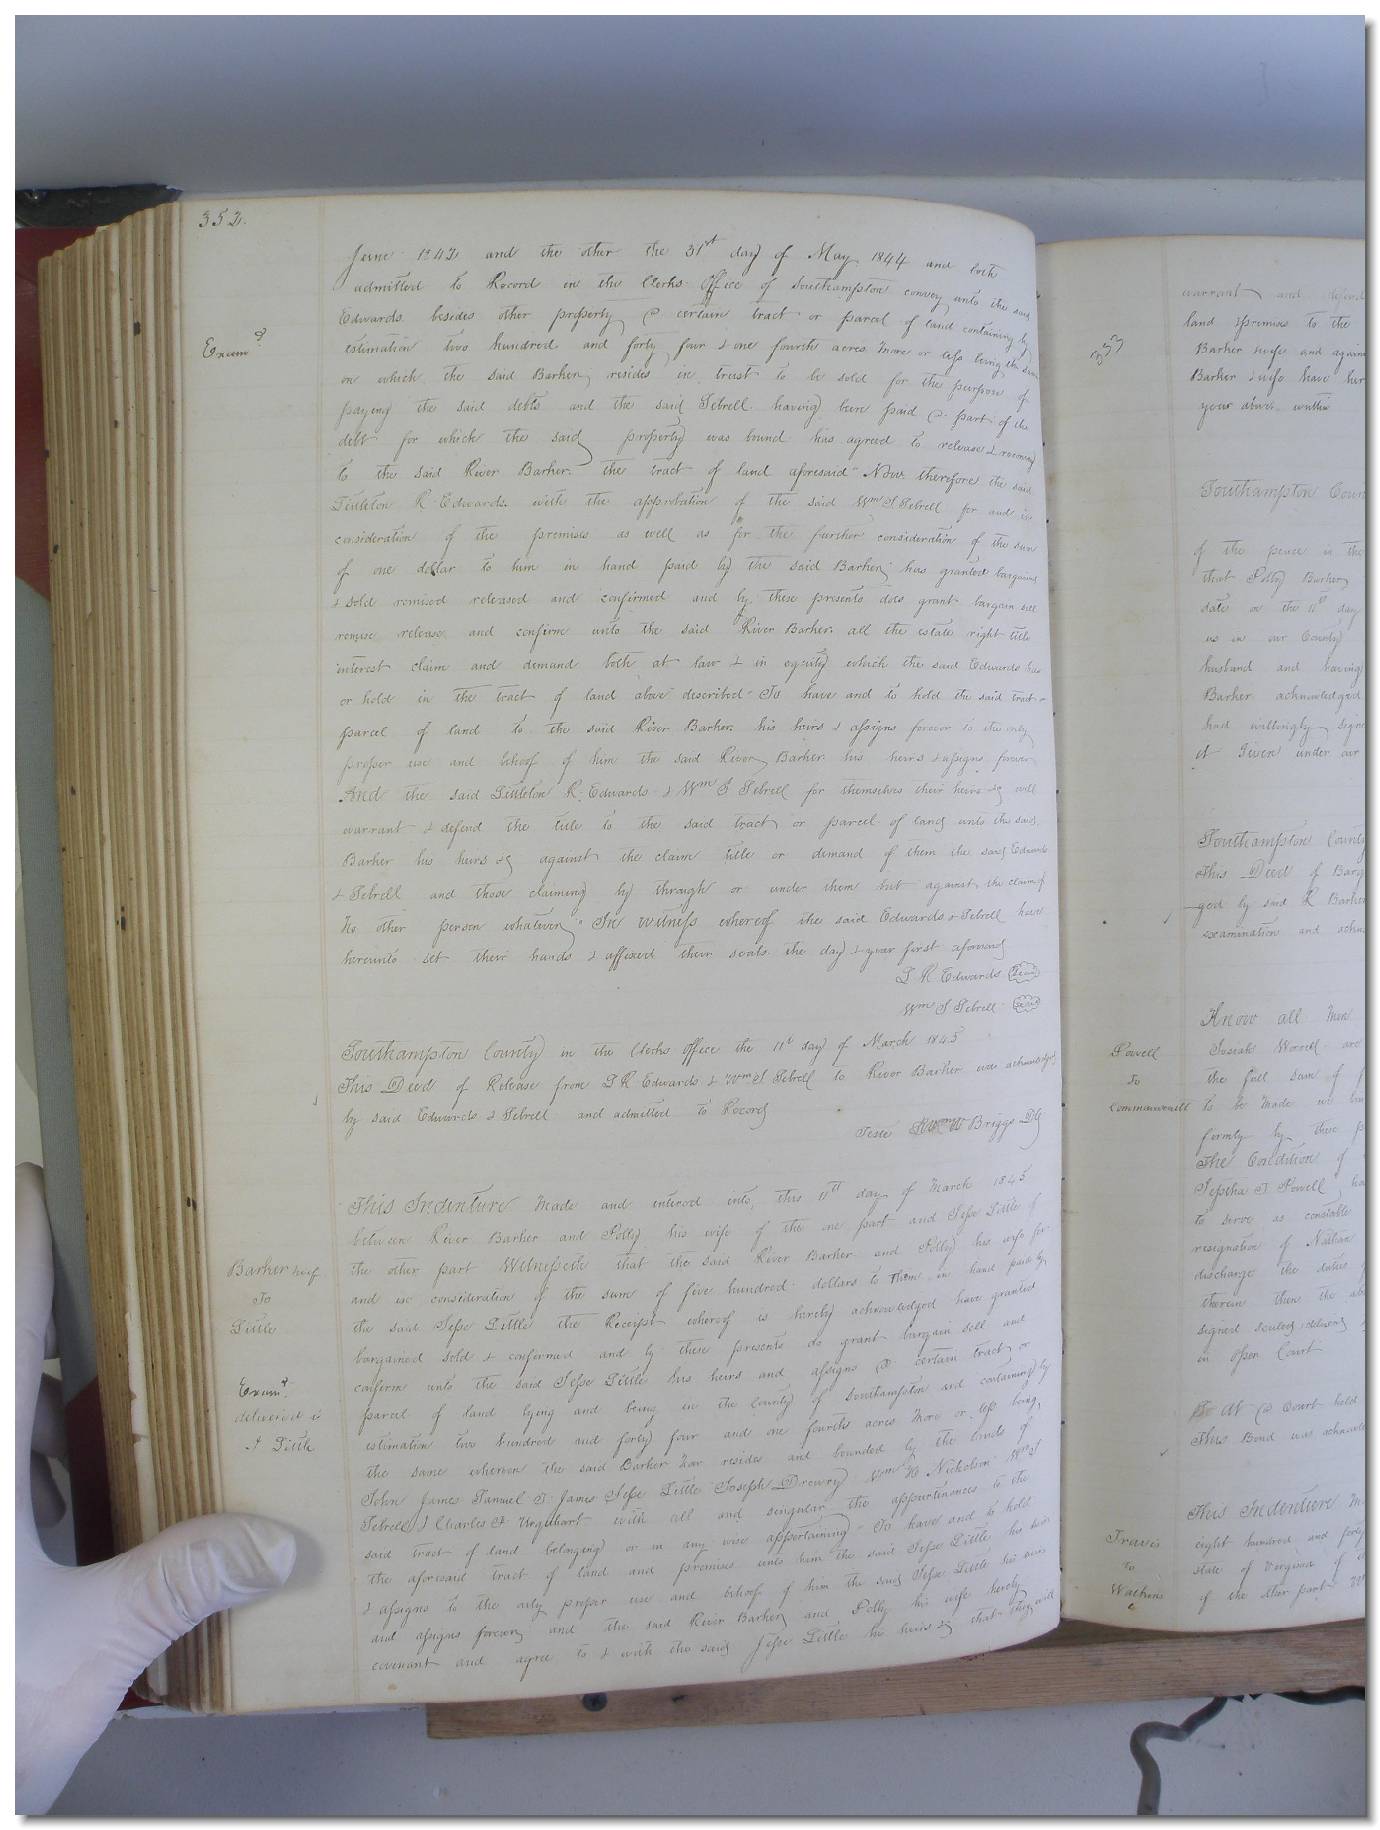 352.
June 1842 and the other the 31st day of May 1844 and both
admitted to Record in the Clerks Office of Southampton convey unto the said
Edwards besides other property a certain tract or parcel of land containing by
Exam d
estimation two hundred and forty four & one fourth acres more or less being the same
on which the said Barker resides in trust to be sold for the purpose of
paying the said debts and the said Sebrell having been paid a part of the
debt for which the said property was bound has agreed to release & reconvey
to the said River Barker the tract of land aforesaid Now therefore the said
Littleton R Edwards with the approbation of the said Wm S Sebrell for and in
consideration of the premises as well as for the further consideration of the sum
of one dollar to him in hand paid by the said Barker has granted bargained
& sold remised released and confirmed and by these presents does grant bargain sell
remise release and confirm unto the said River Barker all the estate right title
interest claim and demand both at law & in equity which the said Edwards has
or hold in the tract of land above described To have and to hold the said tract or
parcel of land to the said River Barker his heirs & assigns forever to the only
proper use and behoof of him the said River Barker his heirs & assigns forever
And the said Littleton R Edwards & Wm S Sebrell for themselves their heirs &c will
warrant & defend the title to the said tract or parcel of land unto the said
Barker his heirs &c against the claim title or demand of them the said Edwards
& Sebrell and those claiming by through or under them but against the claim of
No other person whatever In witness whereof the said Edwards & Sebrell have
hereunto set their hands & affixed their seals the day & year first aforesaid
L R Edwards Seal
Wm S Sebrell Seal
Southampton County in the Clerks Office the 11th day of March 1845
This Deed of Release from L R Edwards & Wm S Sebrell to River Barker was acknowledged
by said Edwards & Sebrell and admitted to Record
Teste Wm W Briggs DC
This Indenture Made and entered into this 11th day of March 1845
between River Barker and Polly his wife of the one part and Jesse Little of
Barker & wife
To
Little
the other part Witnesseth that the said River Barker and Polly his wife for
and in consideration of the sum of five hundred dollars to them in hand paid by
the said Jesse Little the Receipt whereof is hereby acknowledged have granted
bargained sold & confirmed and by these presents do grant bargain sell and
Exam d
delivered to
J Little
confirm unto the said Jesse Little his heirs and assigns a certain tract or
parcel of land lying and being in the County of Southampton and containing by
estimation two hundred and forty four and one fourth acres more or less being
the same whereon the said Barker now resides and bounded by the lands of
John James Samuel T James Jesse Little Joseph Drewry Wm H Nicholson Wm S
Sebrell & Charles F Urquhart with all and singular the appurtenances to the
said tract of land belonging or in any wise appertaining To have and to hold
the aforesaid tract of land and premises unto him the said Jesse Little his heirs
& assigns to the only proper use and behoof of him the said Jesse Little his heirs
and assigns forever and the said River Barker and Polly his wife hereby
covenant and agree to & with the said Jesse Little his heirs &c that they will
353
warrant and defend
land & premises to the
Barker & wife and again
Barker & wife have her
year above written
Southampton Coun
of the peace in the
that Polly Barker
date on the 11th day
us in our County
husband and having
Barker acknowledged
had willingly signe
it Given under our
Southampton County
This Deed of Barg
ged by said R Barker
examination and ackn
Powell
To
Commonwealth
Know all Men
Josiah Worrell are
the full sum of f
to be Made we bin
firmly by these p
The Condition of
Jeptha T Powell ha
to serve as constable
resignation of Nathan
discharge the duties
therein then the ab
signed sealed & deliverd
in open Court
At a Court held
This Bond was acknowle
Travis
to
Watkins
This Indenture M
eight hundred and forty
state of Virginia of
of the other part W